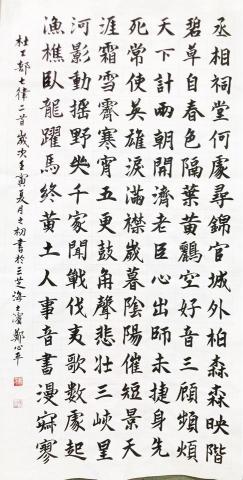 丞相祠堂何處尋錦官城外柏森森映階
碧草自春色隔葉黃鸝空好音三顧頻煩
天下計兩朝開濟老臣心出師未捷身先
死常使英雄淚滿襟歲暮陰陽催短景天
涯霜雪霽寒宵五更鼓角聲悲壯三峽星
河影動搖野哭千家聞戰伐夷歌數處起
漁樵臥龍躍馬終黃土人事音書漫寂寥
杜工部七律二首歲次壬寅夏月之初書於三芝海之濱鄭心平